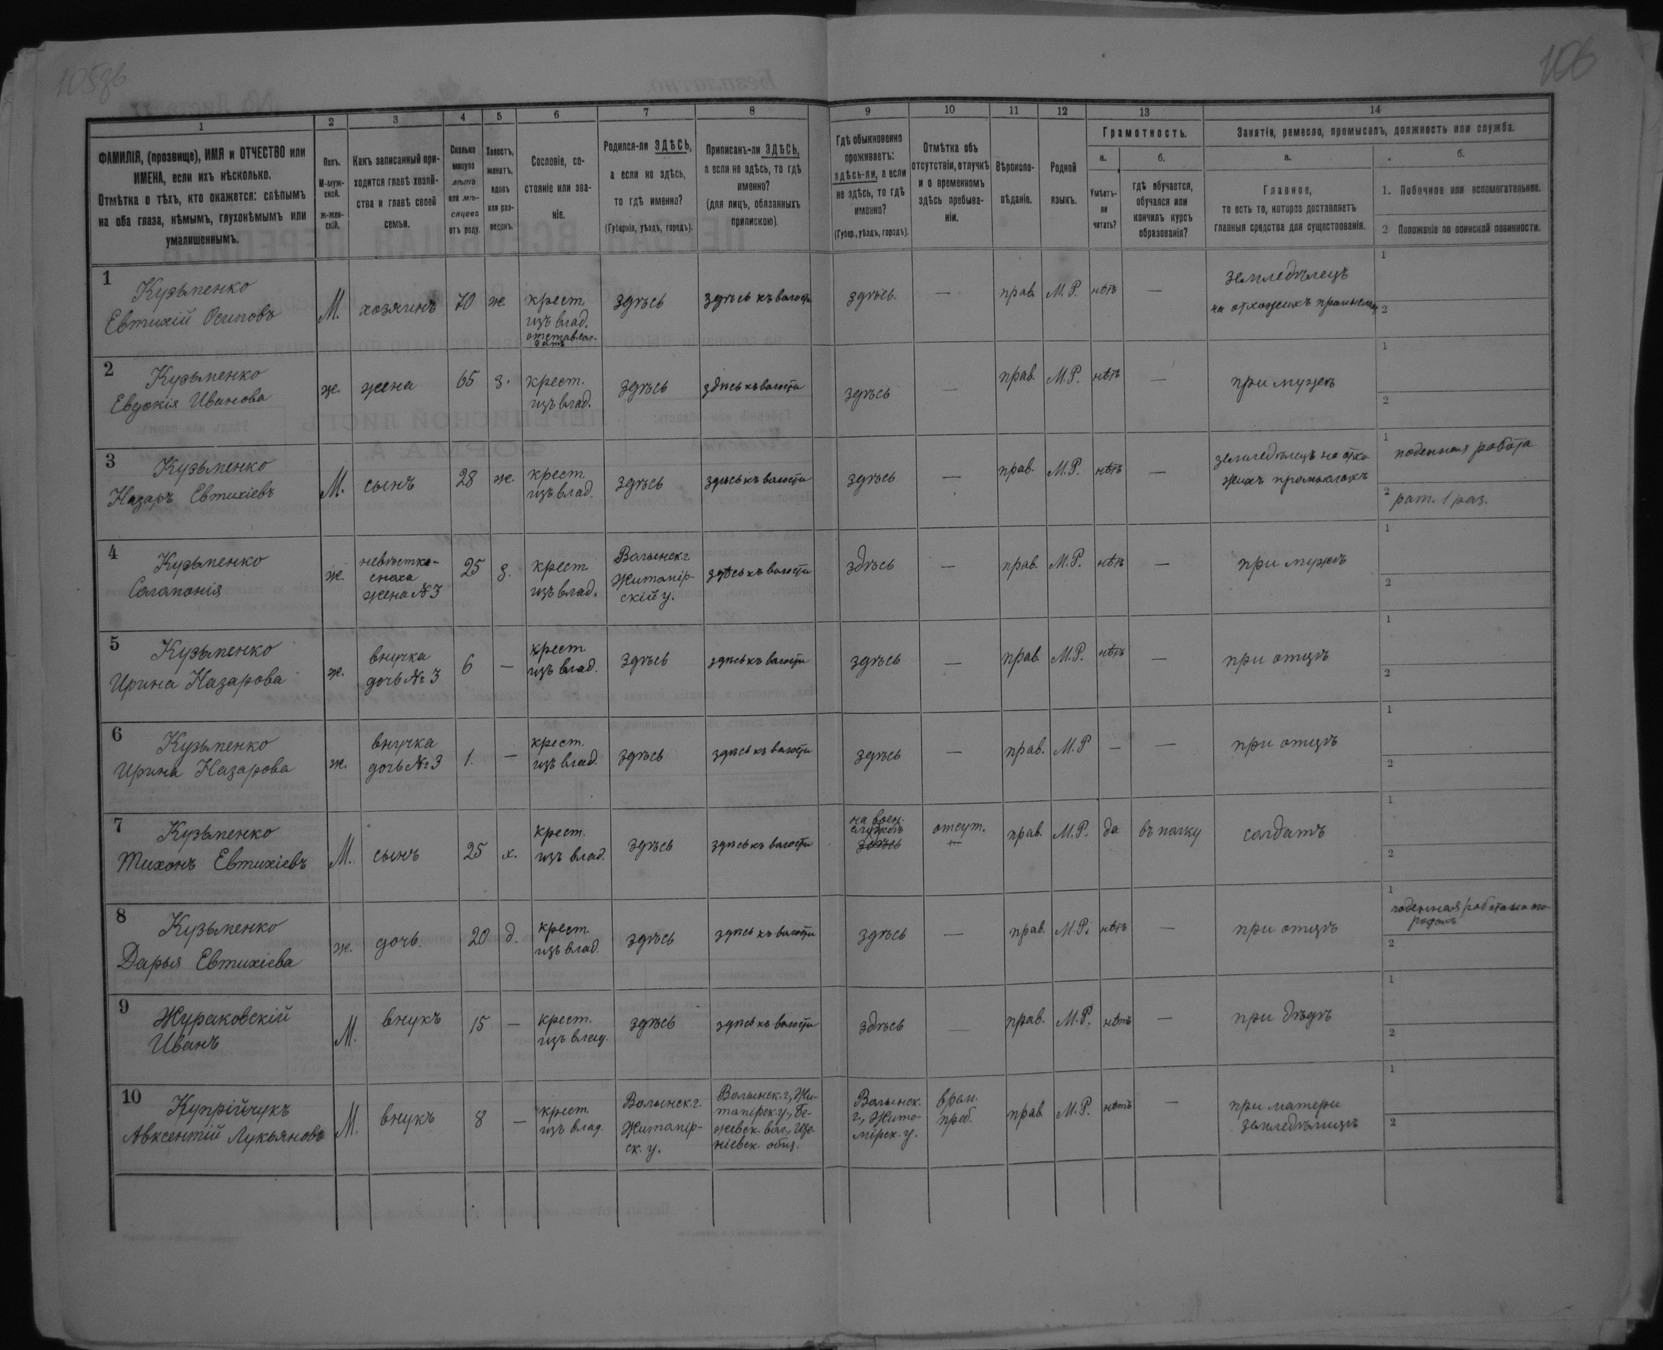 105об
106
1 2 3 4 5 6 7 8 9 10 11 12 13 14
ФАМИЛІЯ, (прозвище), ИМЯ и ОТЧЕСТВО или
ИМЕНА, если ихъ нѣсколько.
Отмѣтка о тѣхъ, кто окажется: слѣпымъ
на оба глаза, нѣмымъ, глухонѣмымъ или
умалишеннымъ.
Полъ.
М-муж-
ской.
Ж-жен-
скій.
Какъ записанный при-
ходится главѣ хозяй-
ства и главѣ своей
семьи.
Сколько
минуло
лѣтъ
или мѣ-
сяцевъ
отъ роду.
Холостъ,
женатъ,
вдовъ
или раз-
веденъ.
Сословіе, со-
стояніе или зва-
ніе.
Родился-ли ЗДѢСЬ,
а если не здѣсь,
то гдѣ именно?
(Губернія, уѣздъ, городъ).
Приписанъ-ли ЗДѢСЬ,
а если не здѣсь, то гдѣ
именно?
(для лицъ, обязанныхъ
припискою).
Гдѣ обыкновенно
проживаетъ:
здѣсь-ли, а если
не здѣсь, то гдѣ
именно?
(Губер., уѣздъ, городъ).
Отмѣтка объ
отсутствіи, отлучкѣ
и о временномъ
здѣсь пребыва-
ніи.
Вѣроиспо-
вѣданіе.
Родной
языкъ.
Грамотность.
а.
Умѣетъ-
ли
читать?
б.
гдѣ обучается,
обучался или
кончилъ курсъ
образованія?
Занятія, ремесло, промыселъ, должность или служба.
а.
Главное,
то есть то, которое доставляетъ
главныя средства для существованія.
б.
1. Побочное или вспомогательное.
2 Положеніе по воинской повинности.
1
Кузьменко
Евтихій Осиповъ
М.
хозяинъ
70
ж
крест.
изъ влад.
здѣсь
здѣсь къ волости
здѣсь.
—
прав.
М.Р.
нѣтъ
—
земледѣлецъ
1
2
2
Кузьменко
Евдокія Иванова
ж.
жена
65
з.
крест.
изъ влад.
здѣсь
здѣсь къ волости
здѣсь
—
прав.
М.Р.
нѣтъ
—
при мужѣ
1
2
3
Кузьменко
Назаръ Евтихіевъ
М.
сынъ
28
ж.
крест.
изъ влад.
здѣсь
здѣсь къ волости
здѣсь
—
прав.
М.Р.
нѣтъ
—
земледѣлецъ на отхо
жихъ промыслахъ
1 поденная работа
2 рат. 1 раз.
4
Кузьменко
Саломонія
ж.
невѣстка-
сноха
жена №3
25
з.
крест.
изъ влад.
Волынск. г.
Житомір-
скій у.
здѣсь къ волости
здѣсь
—
прав.
М.Р.
нѣтъ
—
при мужѣ
1
2
5
Кузьменко
Ирина Назарова
ж.
внучка
дочь № 3
6
—
крест
изъ влад.
здѣсь
здѣсь къ волости
здѣсь
—
прав.
М.Р.
нѣтъ
—
при отцѣ
1
2
6
Кузьменко
Ирина Назарова
ж.
внучка
дочь №3
1.
—
крест.
изъ влад.
здѣсь
здѣсь къ волости
здѣсь
—
прав.
М.Р
—
—
при отцѣ
1
2
7
Кузьменко
Тихонъ Евтихіевъ
М.
сынъ
25
х.
крест.
изъ влад.
здѣсь
здѣсь къ волости
на воен.
службѣ
здѣсь
отсут.
—
прав.
М.Р.
да
въ полку
солдатъ
1
2
8
Кузьменко
Дарья Евтихіева
ж.
дочь.
20
д.
крест.
изъ влад.
здѣсь
здѣсь къ волости
здѣсь
—
прав.
М.Р.
нѣтъ
—
при отцѣ
1
2
9
Жураковскій
Иванъ
М.
внукъ
15
—
крест.
изъ влад.
здѣсь
здѣсь къ волости
здѣсь
—
прав.
М.Р.
нѣтъ
—
при дѣдѣ
1
2
10
Купрійчукъ
Авксентій Лукьяновъ
М.
внукъ
8
—
крест.
изъ влад.
Волынск. г.
Житомір-
ск. у.
Волынск. г., Жи-
томірск. у.,
Волынск.
г., Жито-
мірск. у.
врем.
преб.
прав
М.Р.
нѣтъ
—
при матери
1
2